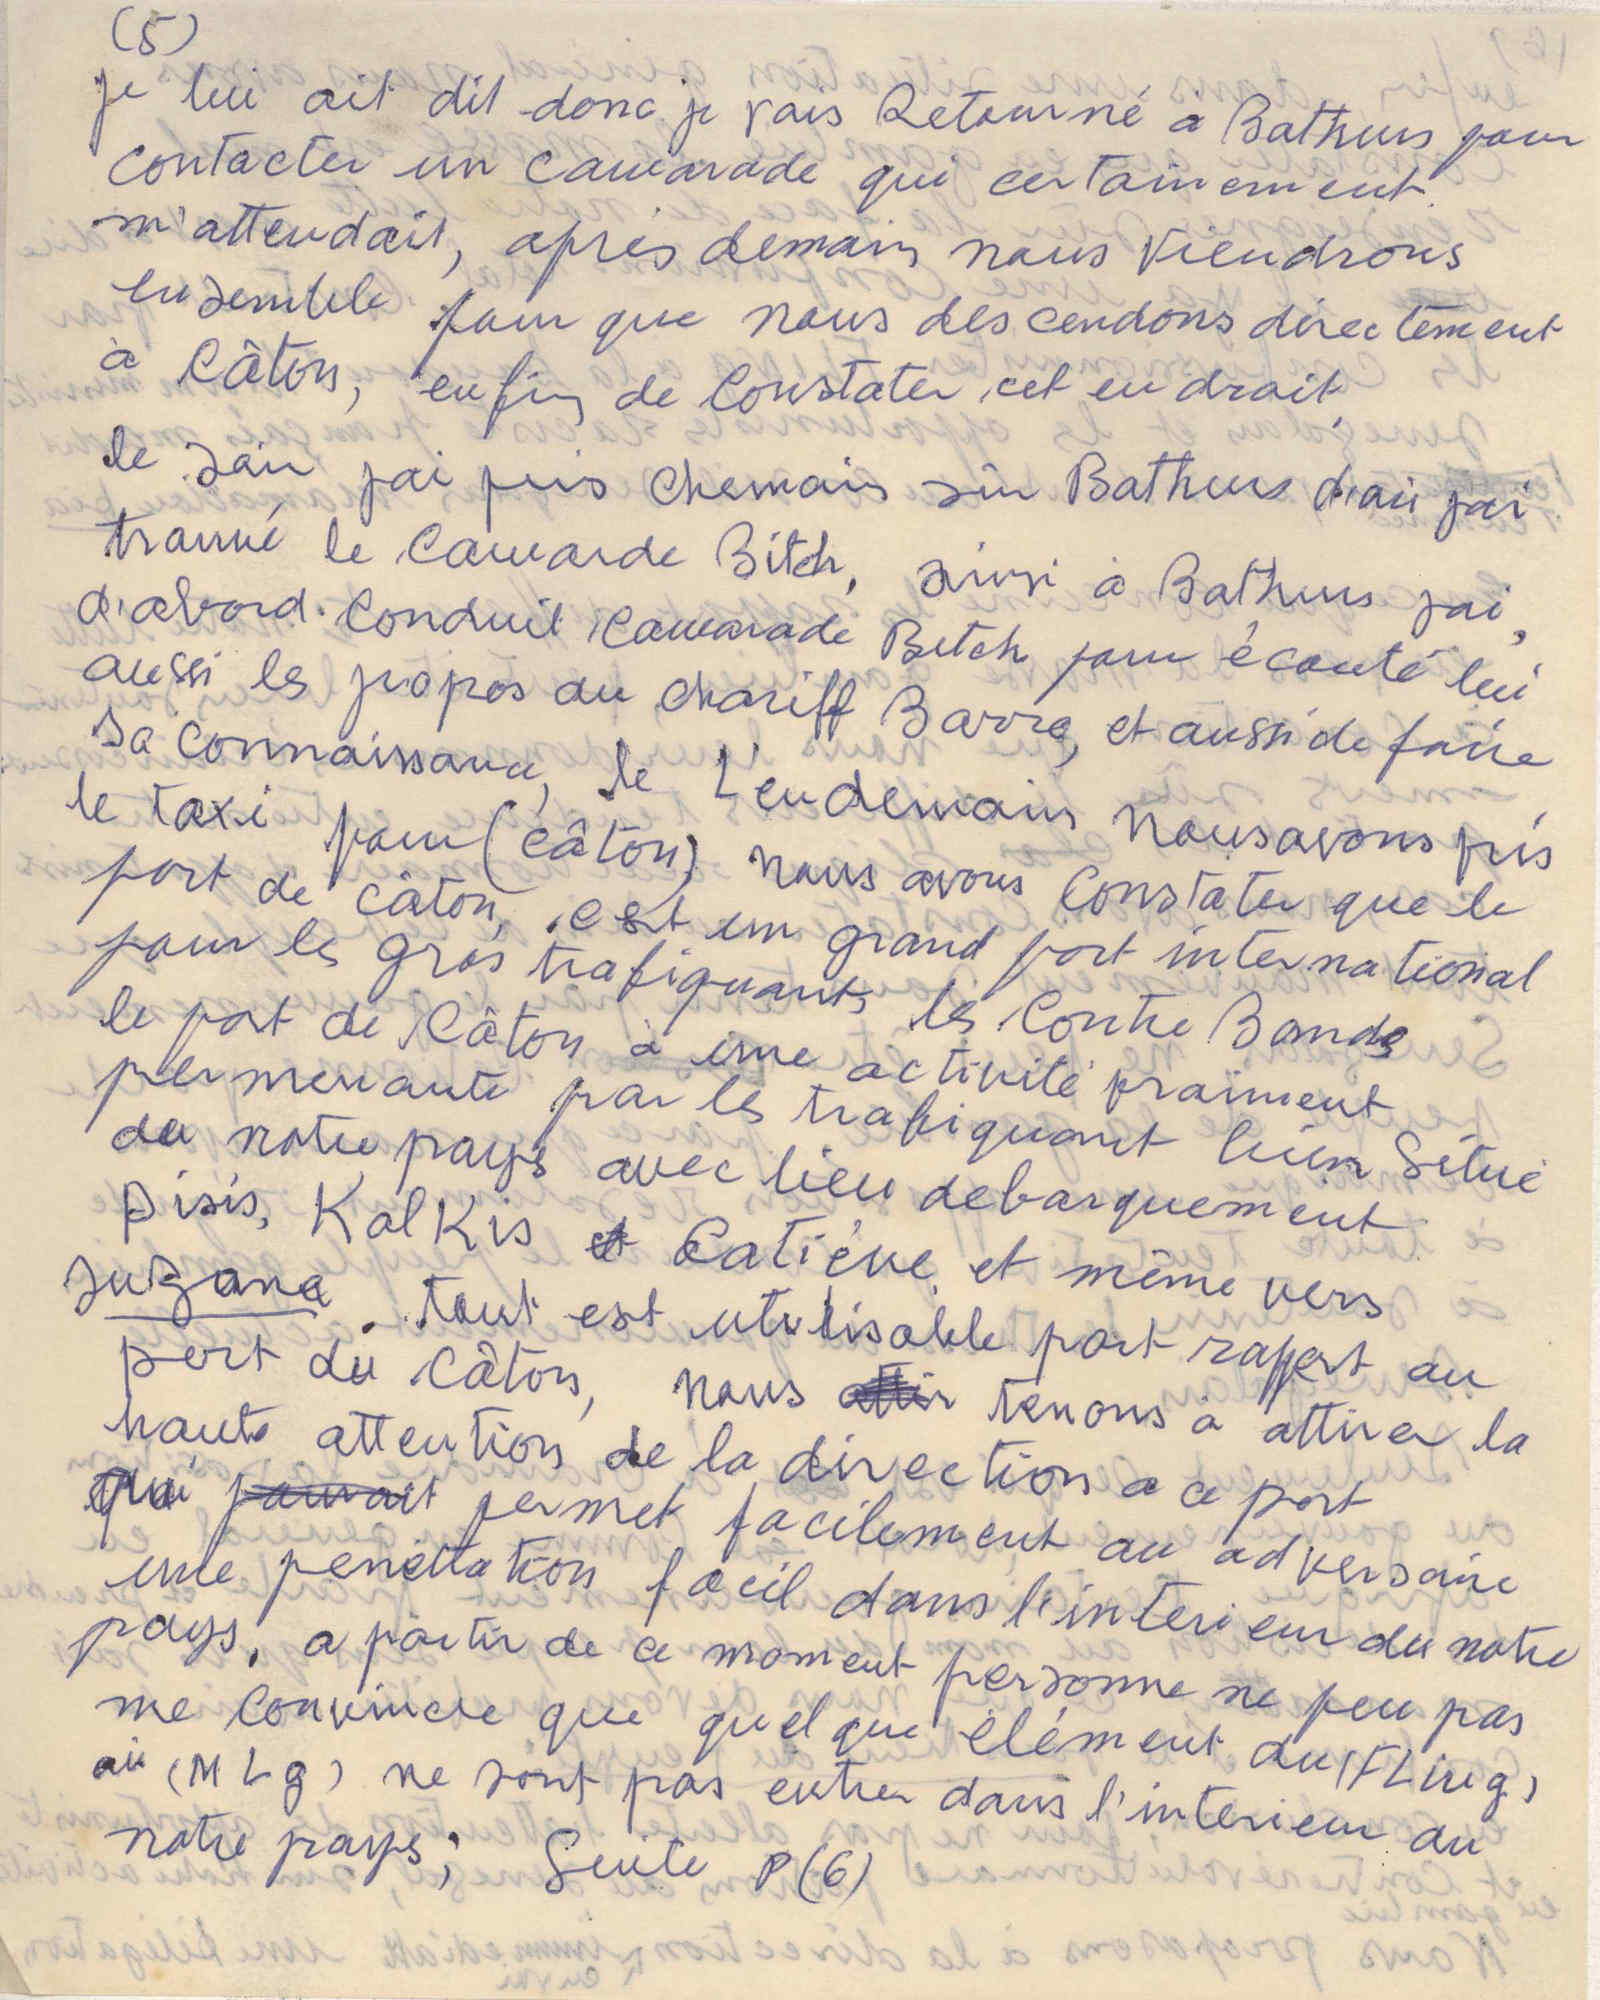 (5)
je lui ait dit donc je vais Retourné à Bathurs pour
contacter un camarade qui certainement
m'attendait, après demain nous viendrons
ensemble pour que nous descendons directement
à Câton, enfin de Constater cet endroit
le soir j'ai pris chemain sur Bathurs d'où j'ai
trouvé le Camarde Bitch, ainsi à Bathurs j'ai
d'abord conduit camarade Bitch pour écouté lui
aussi les propos du chariff Barra, et aussi de faire
sa connaissance, le Lendemain nous avons pris
le taxi pour (Câton) nous avons Constater que le
port de câton, est un grand port international
pour les gros trafiquants les Contre Bande
le port de Câton à une activité vraiment
permenante par les trafiquant bien Situé
du notre pays avec lieu debarquement
Sisis, KalKis et Catiéve et même vers
Suzana. tout est utilisable port rapport au
port du Câton, nous tenons à attirer la
haute attention de la direction a ce port
qui pourrait permet facilement au adversaire
une penettation facil dans l'interieur du notre
pays, a partir de ce moment personne ne peu pas
me convincre que quelque élément du (FLing)
où (MLg) ne sont pas entrer dans l'interieur du
notre pays; Suite P(6)